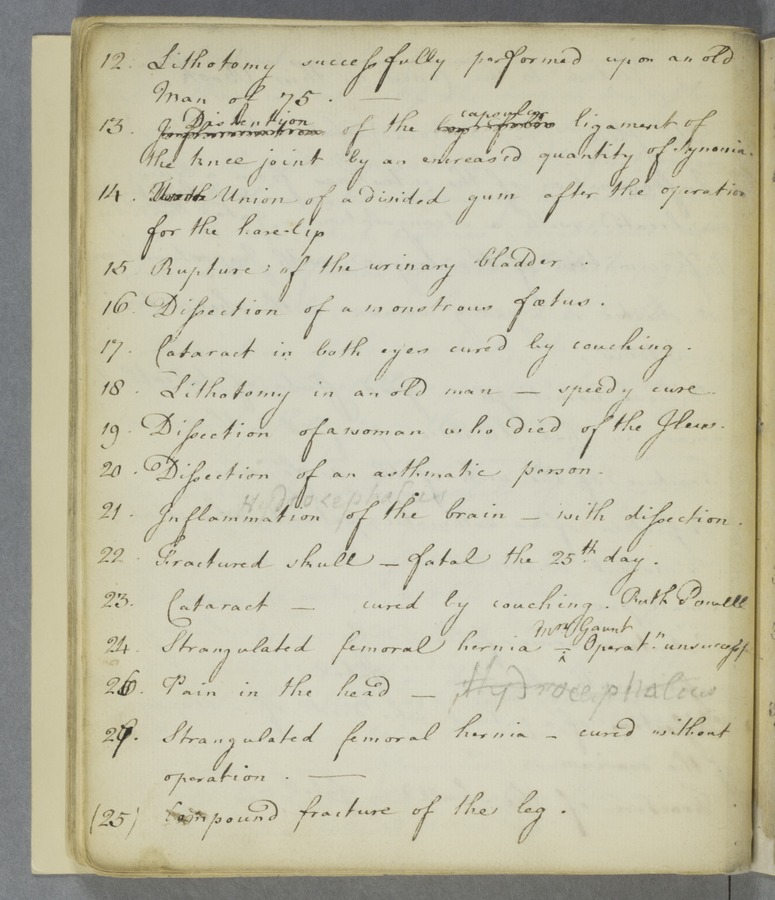 12. Lithotomy successfully performed upon an old
Man of 75. —
13. Distention of the capsular ligament of
the knee joint by an encreased quantity of Synovia.
14. Union of a divided gum after the operation
for the hare-lip
15 Rupture of the urinary bladder.
16. Dissection of a monstrous fœtus.
17. Cataract in both eyes cured by couching.
18. Lithotomy in an old man — speedy cure.
19. Dissection of a woman who died of the Ileus.
20. Dissection of an asthmatic person.
Hydrocephalus
21. Inflammation of the brain — with dissection.
22. Fractured skull — fatal the 25th day.
23. Cataract — cured by couching. Ruth Powell
Mrs Gaunt
24. Strangulated femoral hernia — Operatn unsuccessf
26. Pain in the head — Hydrocephalus
27. Strangulated femoral hernia — cured without
operation. —
(25) Compound fracture of the leg.